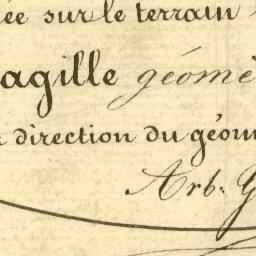 ée sur le terrain
agille géomè
direction du géom
Arb. G